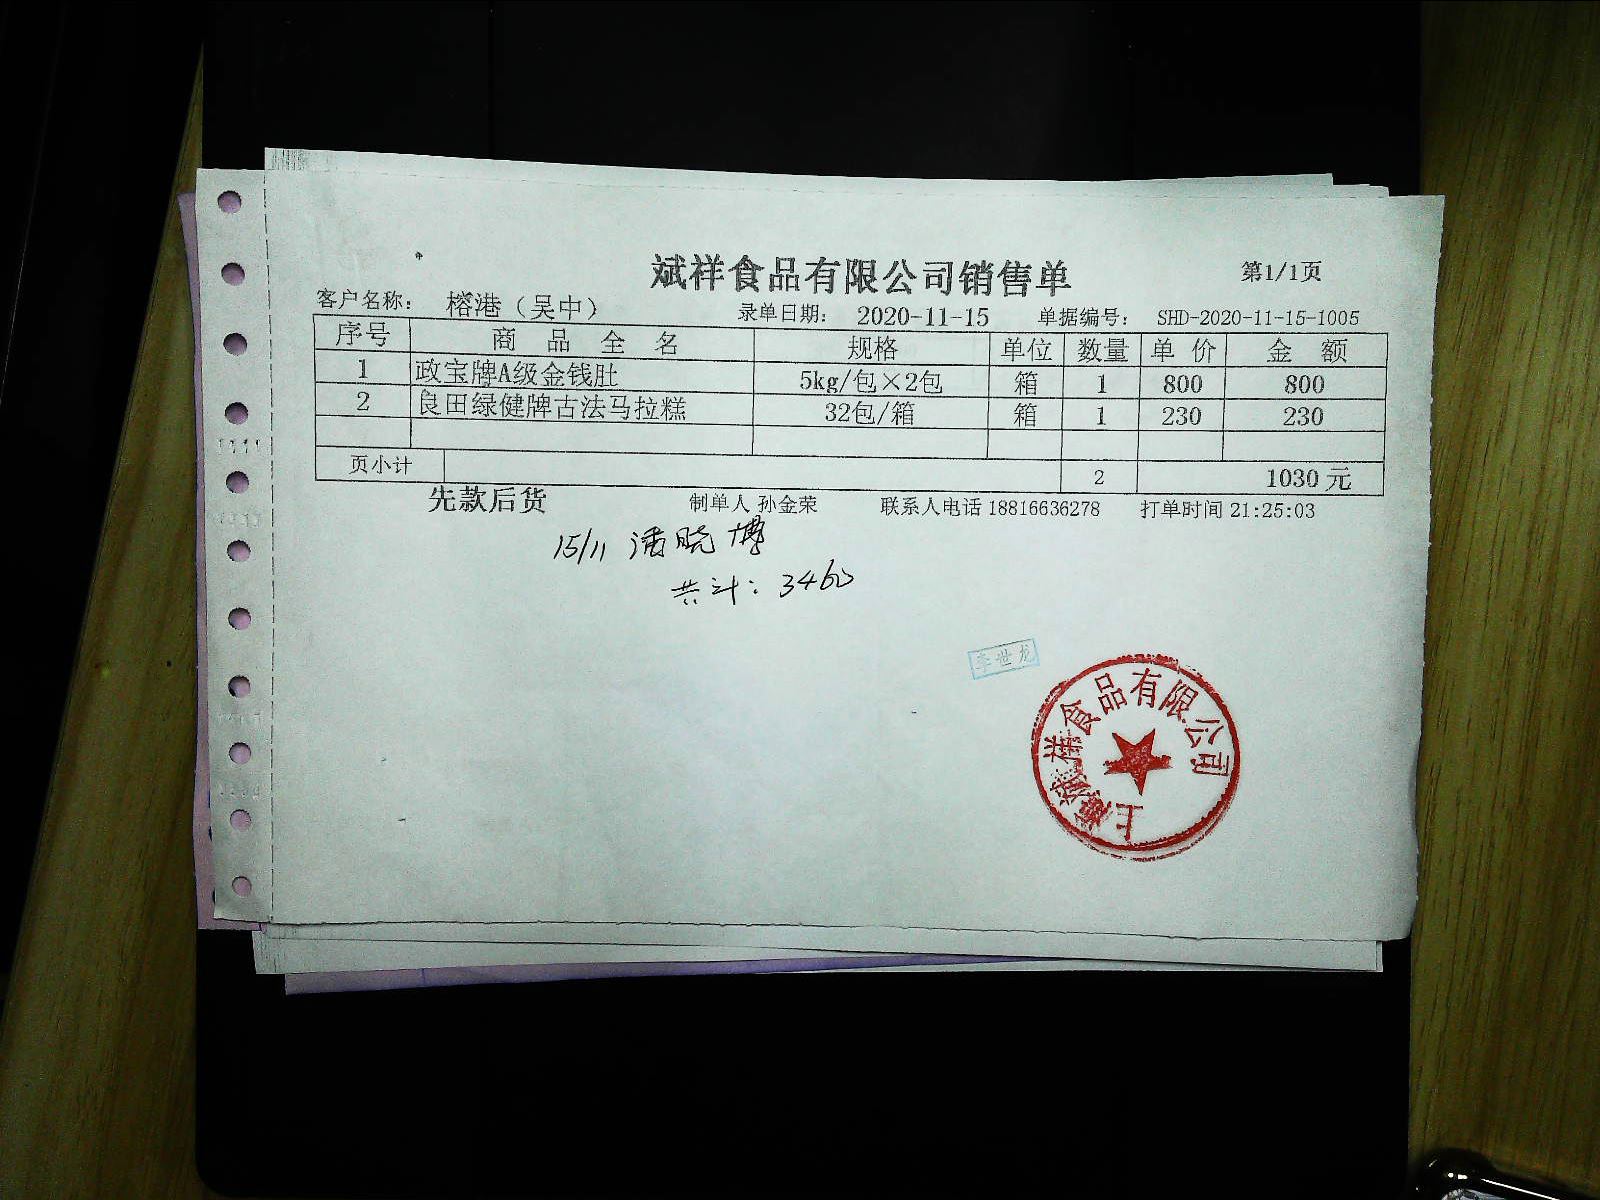 斌祥食品有限公司销售单
第1/1页
客户名称： 榕港（吴中） 录单日期： 2020-11-15 单据编号： SHD-2020-11-15-1005
序号 商品全名 规格 单位 数量 单价 金额
1 政宝牌A级金钱肚 5kg/包×2包 箱 1 800 800
2 良田绿健牌古法马拉糕 32包/箱 箱 1 230 230
页小计 2 1030元
先款后货 制单人 孙金荣 联系人电话 18816636278 打单时间 21:25:03
15/11 潘晓博
共计：3460
李世龙
上海斌祥食品有限公司